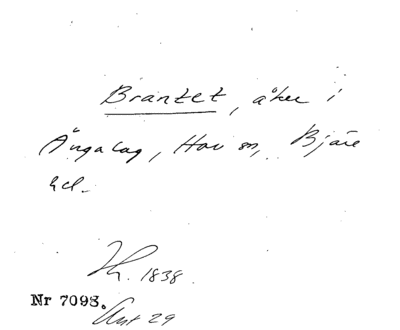 Brantet, åker i
Ängalag, Hov sn, Bjäre
hd.
Lh. 1838.
Nr 7098.
Ant 29